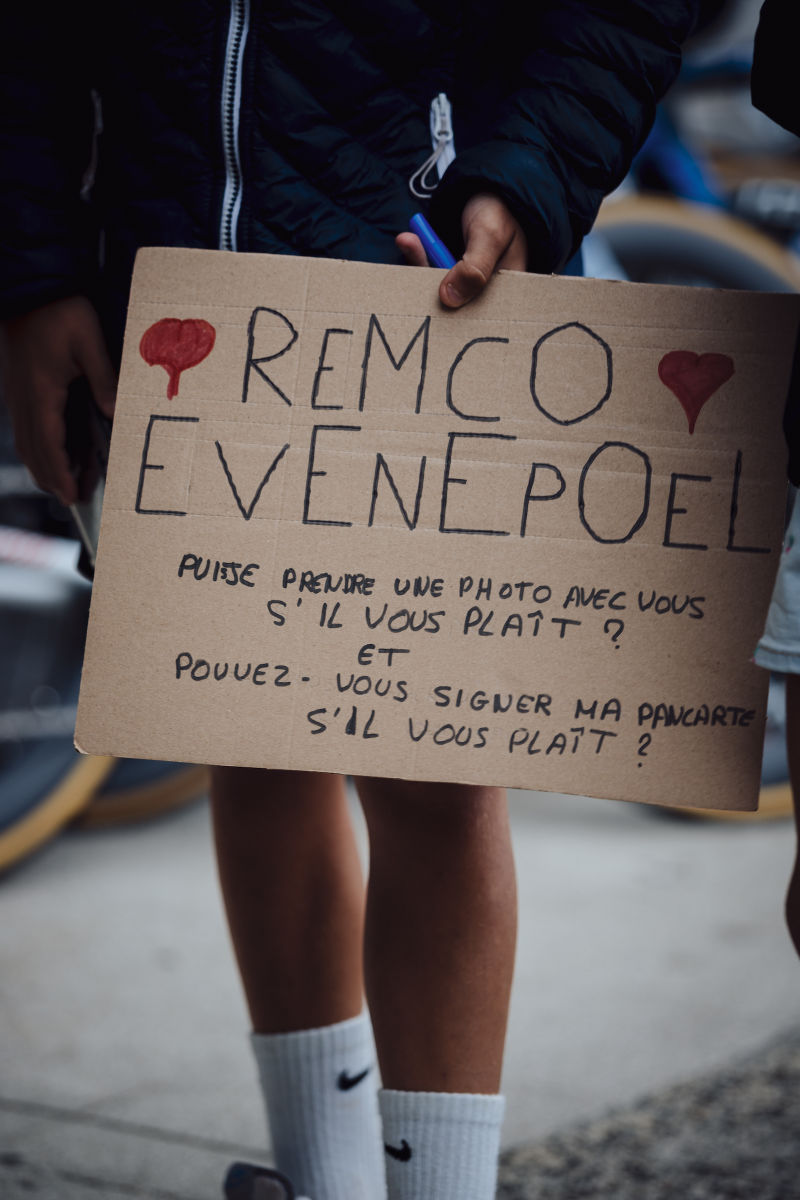 REMCO
EVENEPOEL
PUISJE PRENDRE UNE PHOTO AVEC VOUS
S'IL VOUS PLAÎT ?
ET
POUVEZ-VOUS SIGNER MA PANCARTE
S'IL VOUS PLAÎT ?